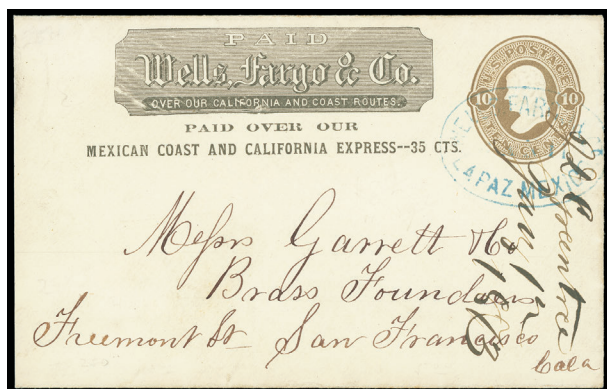 PAID
Wells, Fargo & Co.
OVER OUR CALIFORNIA AND COAST ROUTES.
PAID OVER OUR
MEXICAN COAST AND CALIFORNIA EXPRESS--35 CTS.
U.S. POSTAGE
10 10
TEN CENTS
WELLS FARGO
LA PAZ MEXICO
Messrs Garrett & Co
Brass Founders
Freemont St San Francisco
Cala